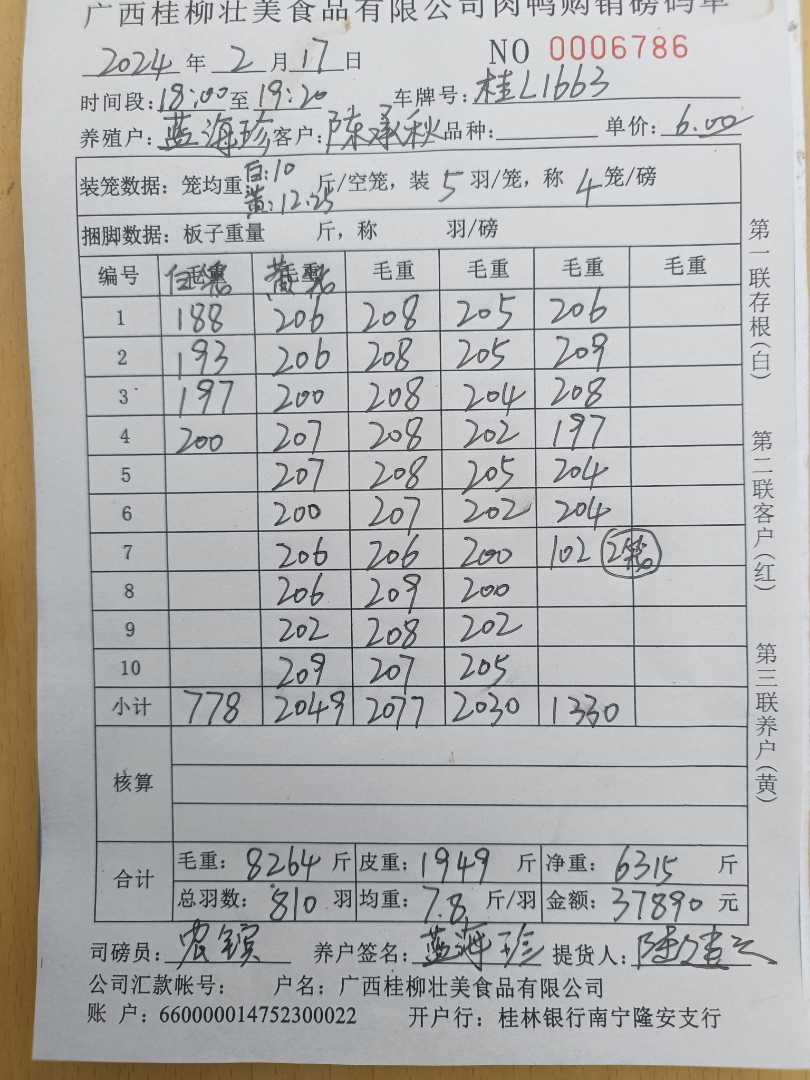 广西桂柳壮美食品有限公司肉鸭购销磅码单
2024 年 2 月 17 日 NO 0006786
时间段: 18:00 至 19:20 车牌号: 桂L1663
养殖户: 蓝海珍 客户: 陈承秋 品种: 单价: 6.00
装笼数据: 笼均重 白:10 黄:12.25 斤/空笼, 装 5 羽/笼, 称 4 笼/磅
捆脚数据: 板子重量 斤, 称 羽/磅
编号 白笼 毛重 黄笼 毛重 毛重 毛重 毛重 毛重
1 188 206 208 205 206
2 193 206 208 205 209
3 197 200 208 204 208
4 200 207 208 202 197
5 207 208 205 204
6 200 207 202 204
7 206 206 200 102 2笼
8 206 209 200
9 202 208 202
10 209 207 205
小计 778 2049 2077 2030 1330
核算
合计 毛重: 8264 斤 皮重: 1949 斤 净重: 6315 斤
总羽数: 810 羽 均重: 7.8 斤/羽 金额: 37890 元
司磅员: 养户签名: 蓝海珍 提货人:
公司汇款帐号: 户名: 广西桂柳壮美食品有限公司
账 户: 660000014752300022 开户行: 桂林银行南宁隆安支行
第一联存根(白) 第二联客户(红) 第三联养户(黄)